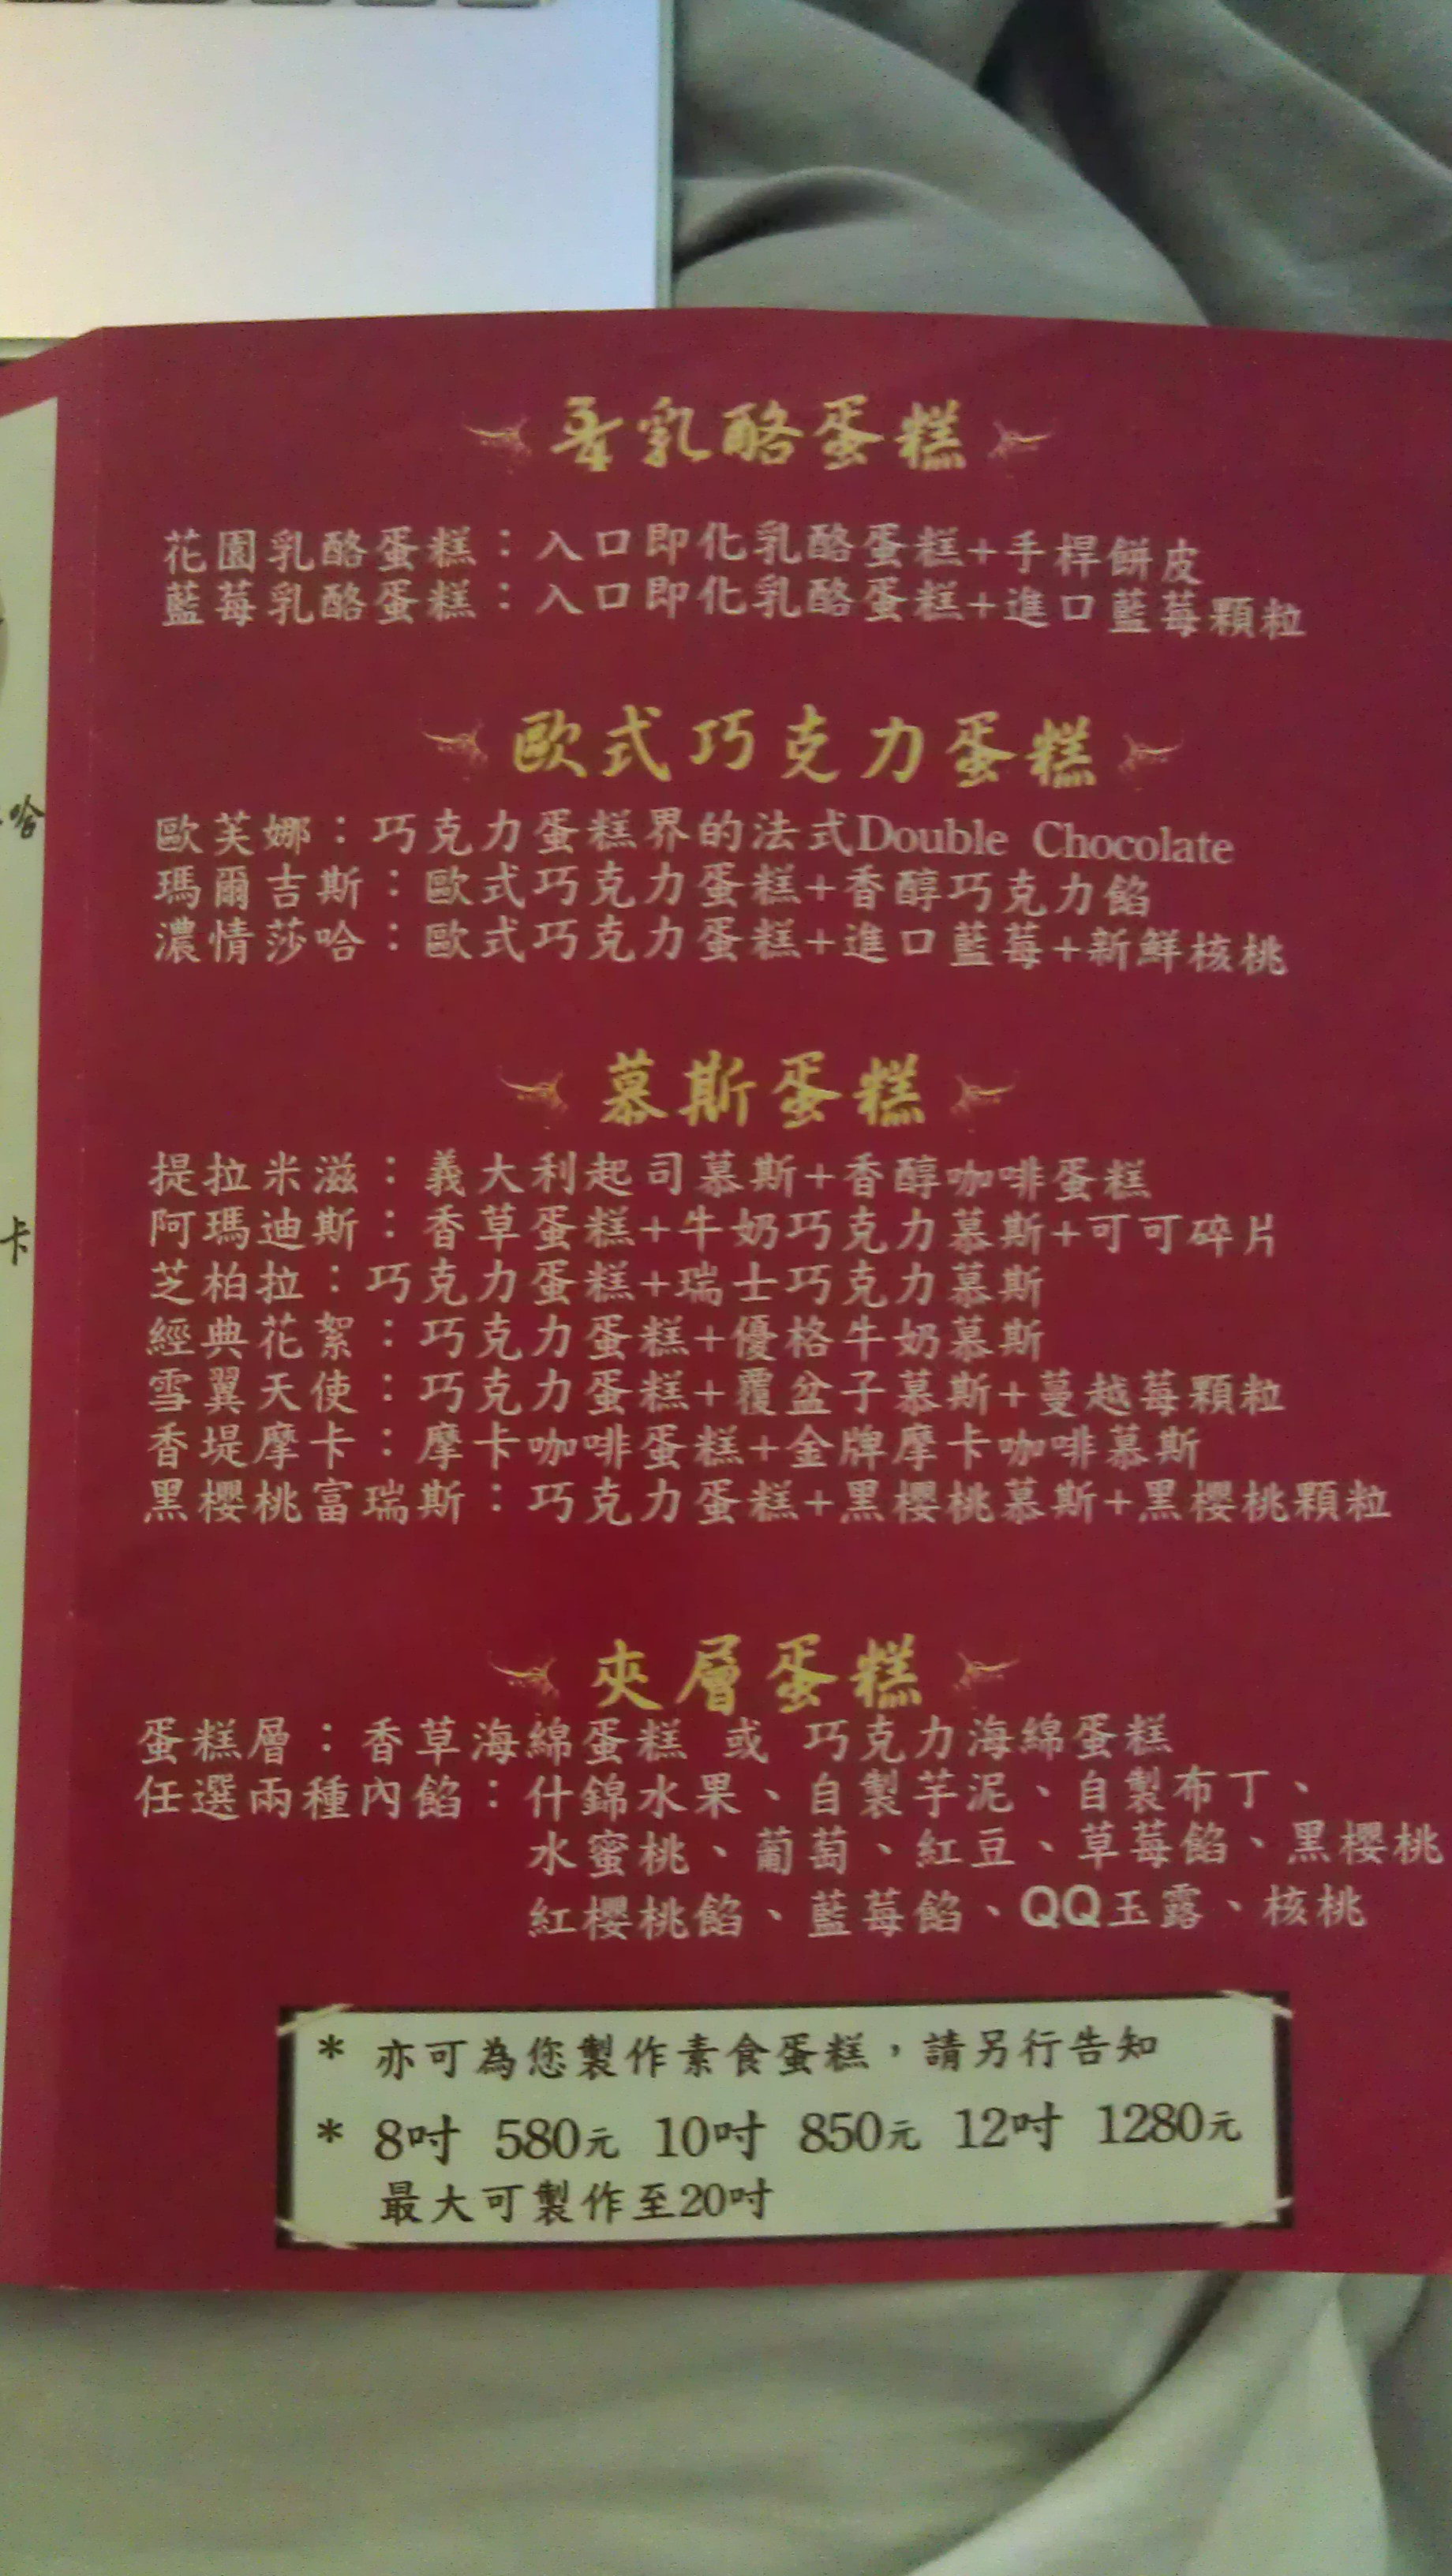 乳酪蛋糕
花園乳酪蛋糕：入口即化乳酪蛋糕+手桿餅皮
藍莓乳酪蛋糕：入口即化乳酪蛋糕+進口藍莓顆粒
歐式巧克力蛋糕
歐芙娜：巧克力蛋糕界的法式Double Chocolate
瑪爾吉斯：歐式巧克力蛋糕+香醇巧克力餡
濃情莎哈：歐式巧克力蛋糕+進口藍莓+新鮮核桃
哈
慕斯蛋糕
提拉米滋：義大利起司慕斯+香醇咖啡蛋糕
阿瑪迪斯：香草蛋糕+牛奶巧克力慕斯+可可碎片
卡
芝柏拉：巧克力蛋糕+瑞士巧克力慕斯
經典花絮：巧克力蛋糕+優格牛奶慕斯
雪翼天使：巧克力蛋糕+覆盆子慕斯+蔓越莓顆粒
香堤摩卡：摩卡咖啡蛋糕+金牌摩卡咖啡慕斯
黑櫻桃富瑞斯：巧克力蛋糕+黑櫻桃慕斯+黑櫻桃顆粒
夾層蛋糕
蛋糕層：香草海綿蛋糕 或 巧克力海綿蛋糕
任選兩種內餡：什錦水果、自製芋泥、自製布丁、
水蜜桃、葡萄、紅豆、草莓餡、黑櫻桃
紅櫻桃餡、藍莓餡、QQ玉露、核桃
* 亦可為您製作素食蛋糕，請另行告知
* 8吋 580元 10吋 850元 12吋 1280元
最大可製作至20吋